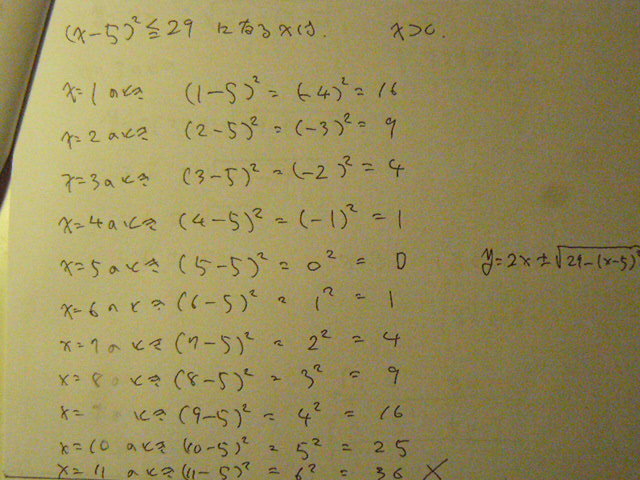 (x-5)²≦29 になるxは. x>0.
x=1のとき (1-5)²=(-4)²=16
x=2のとき (2-5)²=(-3)²=9
x=3のとき (3-5)²=(-2)²=4
x=4のとき (4-5)²=(-1)²=1
x=5のとき (5-5)²=0²=0
y=2x±√29-(x-5)²
x=6のとき (6-5)²=1²=1
x=7のとき (7-5)²=2²=4
x=8のとき (8-5)²=3²=9
x= のとき (9-5)²=4²=16
x=10のとき (10-5)²=5²=25
x=11のとき (11-5)²=6²=36 ×